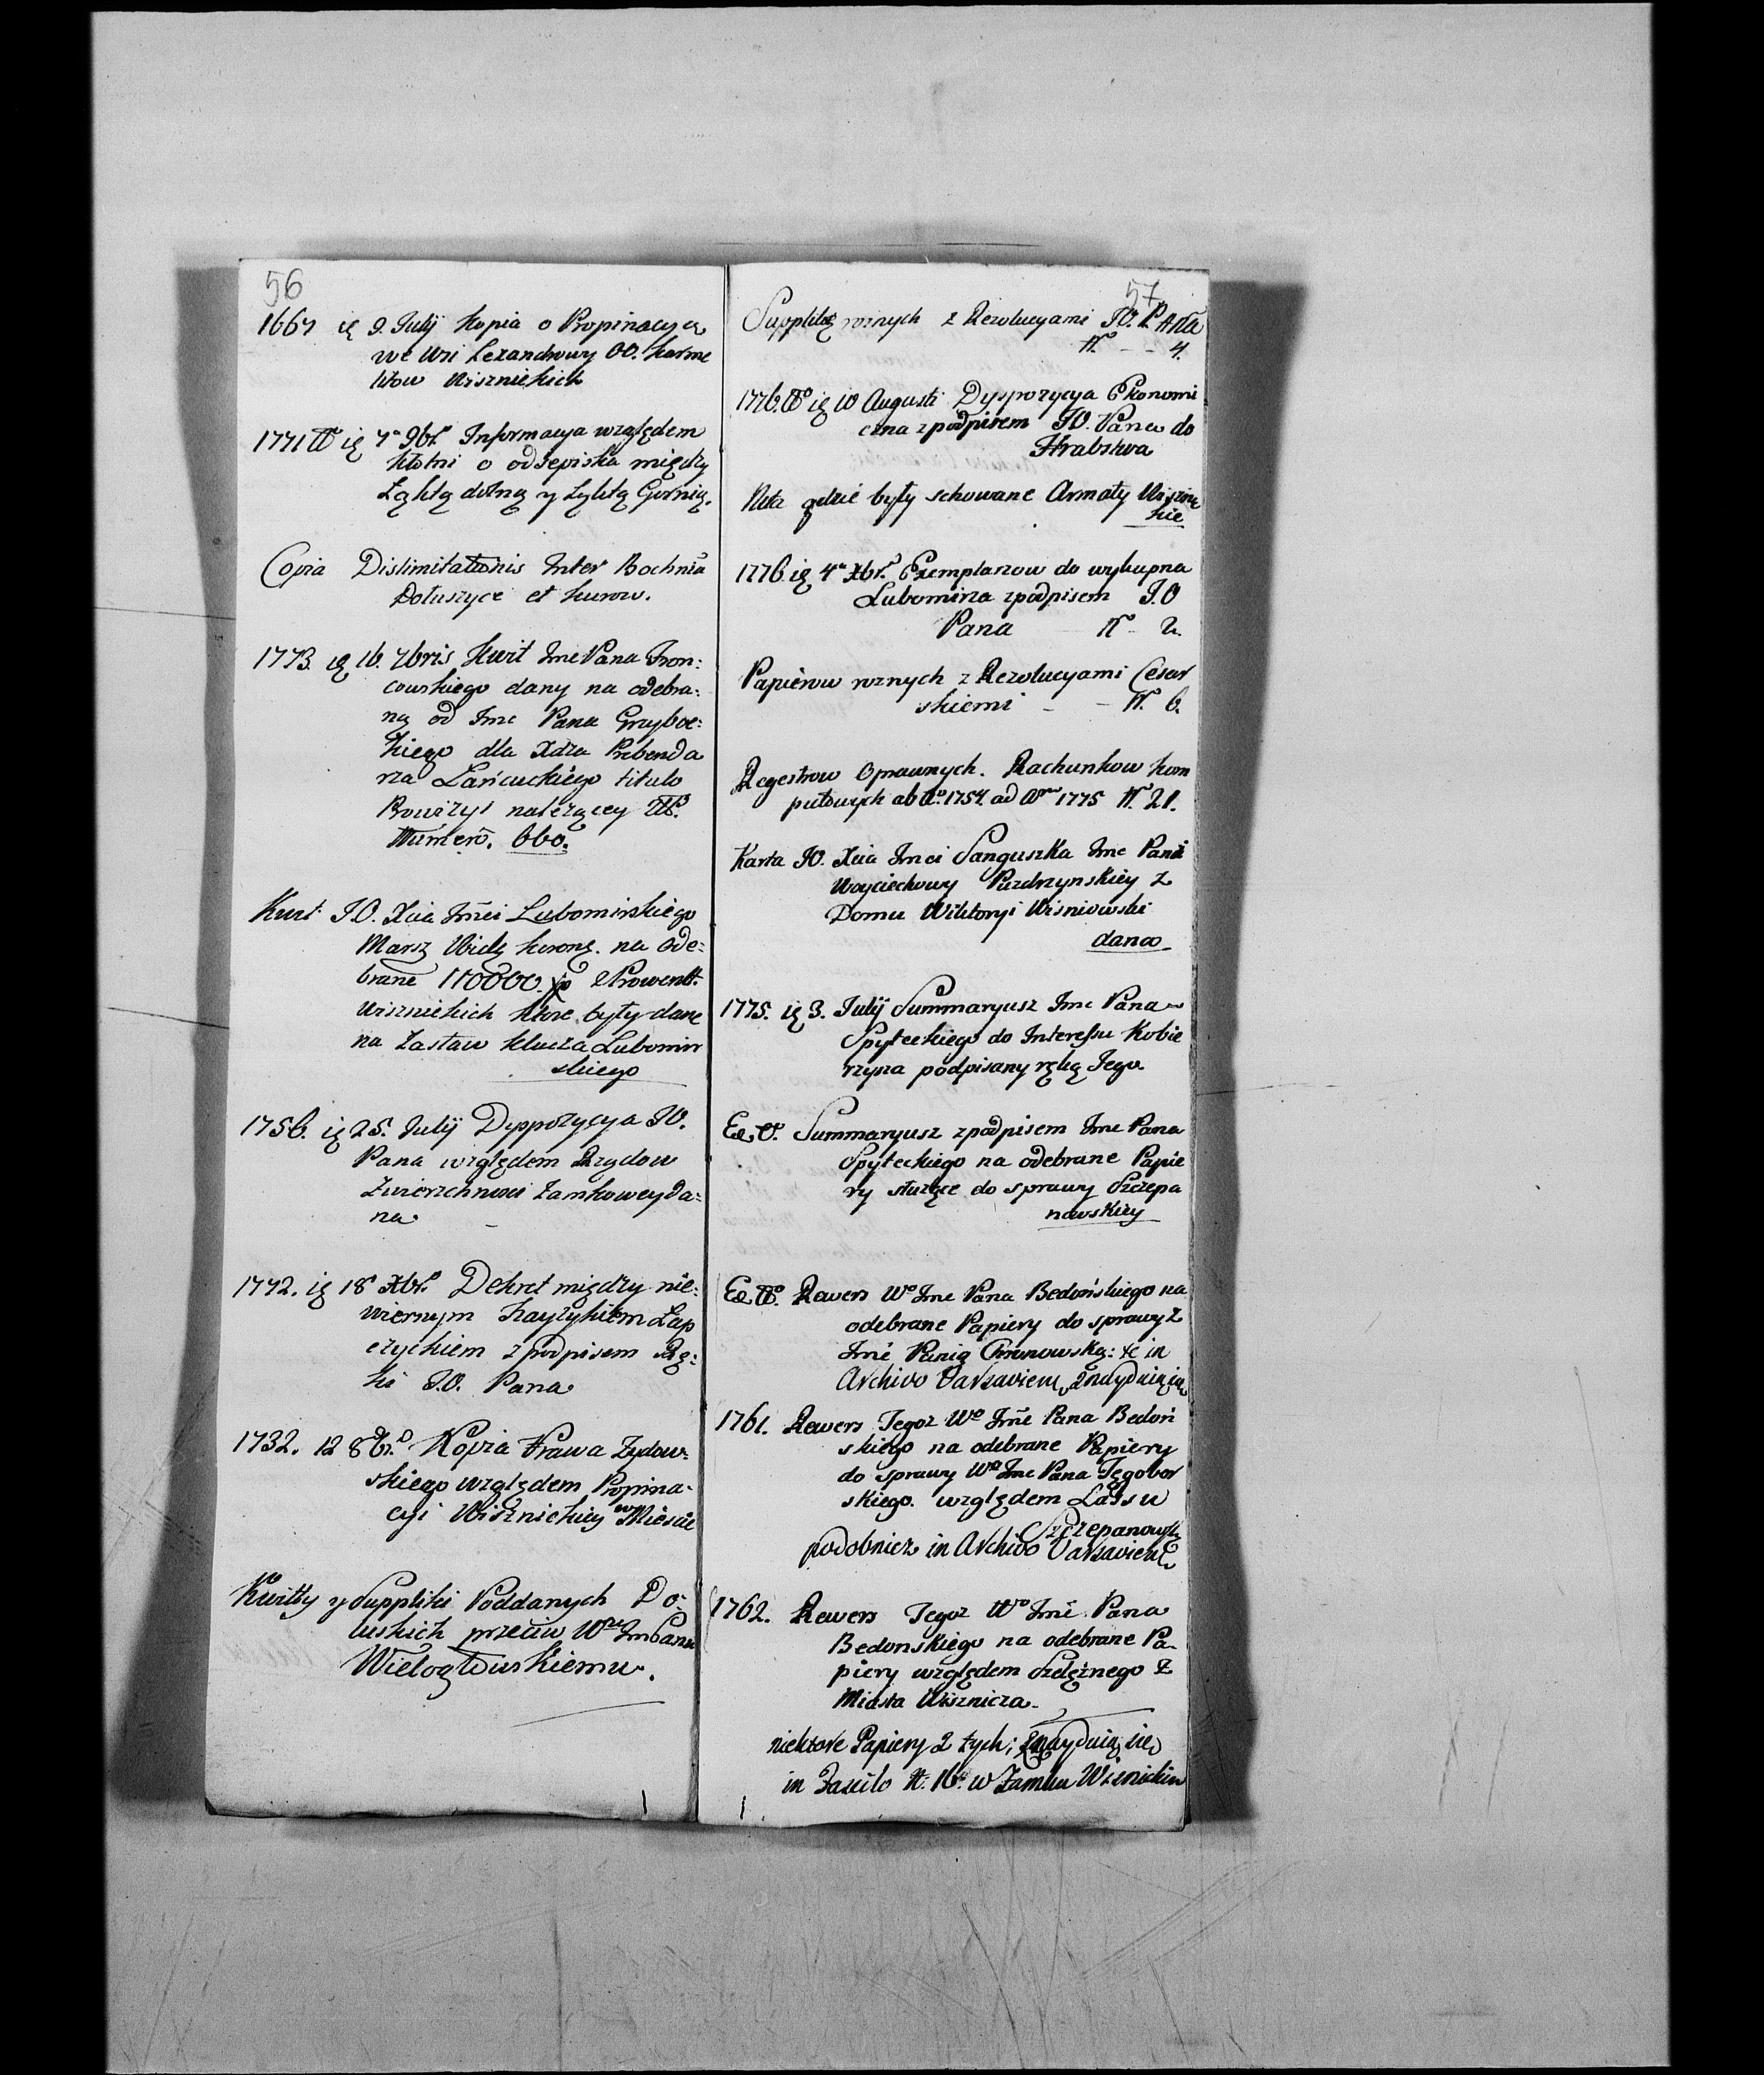 56
1667 ię 9. Julij Kopia o Propinacyą
we Wsi Lexandrowy OO. Karme
litow Wisznickich
1771 ię 7a 9br. Informacya względem
kłotni o odsepiska między
Łąktą dolną y Łąktą Gornią.
Copia Dislimitationis Inter Bochnia
Dołuszyce et Kurow.
1773. ię 16. 7bris Kwit Jmc Pana Fron:
cowskiego dany na odebra:
ną od Jmc Pana Grzyboc:
kiego dla Xdza Prebenda
rza Łańcuckiego titulo
Prowizyi należącey
Numero. 660.
Kwit J.O. Xcia Jmci Lubomirskiego
Marsz Wielg Koronę. na ode:
brane 110000. z Prowent.
Wisznickich ktore były dane
na Zastaw klucza Lubomir
skiego
1756. ię 25. Julij Dyspozycya JO.
Pana względem Rządow
Zwierzchnosci Zamkowey da:
na
1772. ię 18 Xbr. Dekret między nie:
wiernym Łap
czyckiem z podpisem Rę:
ki J.O. Pana
1732. 12 8br. Kopia Prawa Żydow:
skiego względem Propina:
cyi Wisznickiey w Miescie
Kwitty y Suppliki Poddanych Do:
luskich przeciw Wmu Jm Panu
Wielogłowskiemu.
57
Supplik roznych z Rezolucyami JO. Pana
N. 4.
1776. ię 10 Augusti Dyspozycya Ekonomi
czna z podpisem JO. Pana do
Hrabstwa
Nota gdzie były schowane Armaty Wisznic
kie
1776. ię 4a Xbr. Exemplarzow do wykupna
Lubomirza z podpisem J.O
Pana N. 2.
Papierow roznych z Rezolucyami Cesar
skiemi N. 6.
Regestrow Oprawnych. Rachunkow Kom
putowych ab Ao. 1754. ad 1775 N. 21.
Karta JO. Xcia Jmci Sanguszka Jmc Pani
Woyciechowy Puzdrzynskiey z
Domu Wiktoryi Wisniowski
dana
1775. ię 3. Julij Summaryusz Jmc Pana
Spyteckiego do Interessu Kobie
rzyna podpisany ręką Jego
Eo. Summaryusz z podpisem Jmc Pana
Spyteckiego na odebrane Papie
ry służące do sprawy Szczepa
nowskiey
Eo. Rewers Wo Jmc Pana Bedońskiego na
odebrane Papiery do sprawy z
Jmc Panią Chronowską: in
Archivo Varsavien znaydnią się
1761. Rewers Tegoz Wo Jmc Pana Bedoń
skiego na odebrane Papiery
do sprawy Wo Jmc Pana Tęgobor
skiego. względem Lassu
Szczepanowsk
podobniez in Archivo Varsavien
1762. Rewers Tegoz Wo Jmc Pana
Bedonskiego na odebrane Pa:
piery względem Szelężnego z
Miasta Wisznicza.
niektore Papiery z tych; znaydnią się
in N: 16. w Zamku Wisnickim